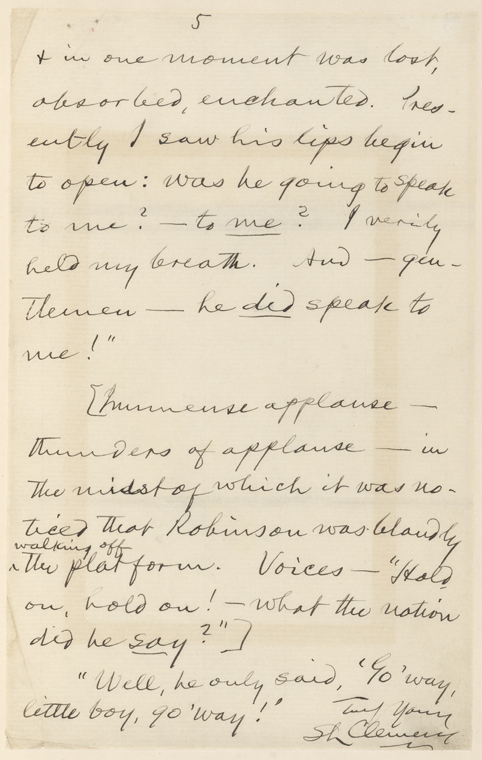 5
& in one moment was lost,
absorbed, enchanted. Pres-
ently I saw his lips begin
to open: was he going to speak
to me? — to me? I verily
held my breath. And — gen-
tlemen — he did speak to
me!"
[Immense applause —
thunders of applause — in
the midst of which it was no-
ticed that Robinson was blandly
walking off
the platform. Voices — "Hold
on, hold on! — what the nation
did he say?"]
"Well, he only said, 'Go 'way,
little boy, go 'way!'"
Truly Yours
SL Clemens